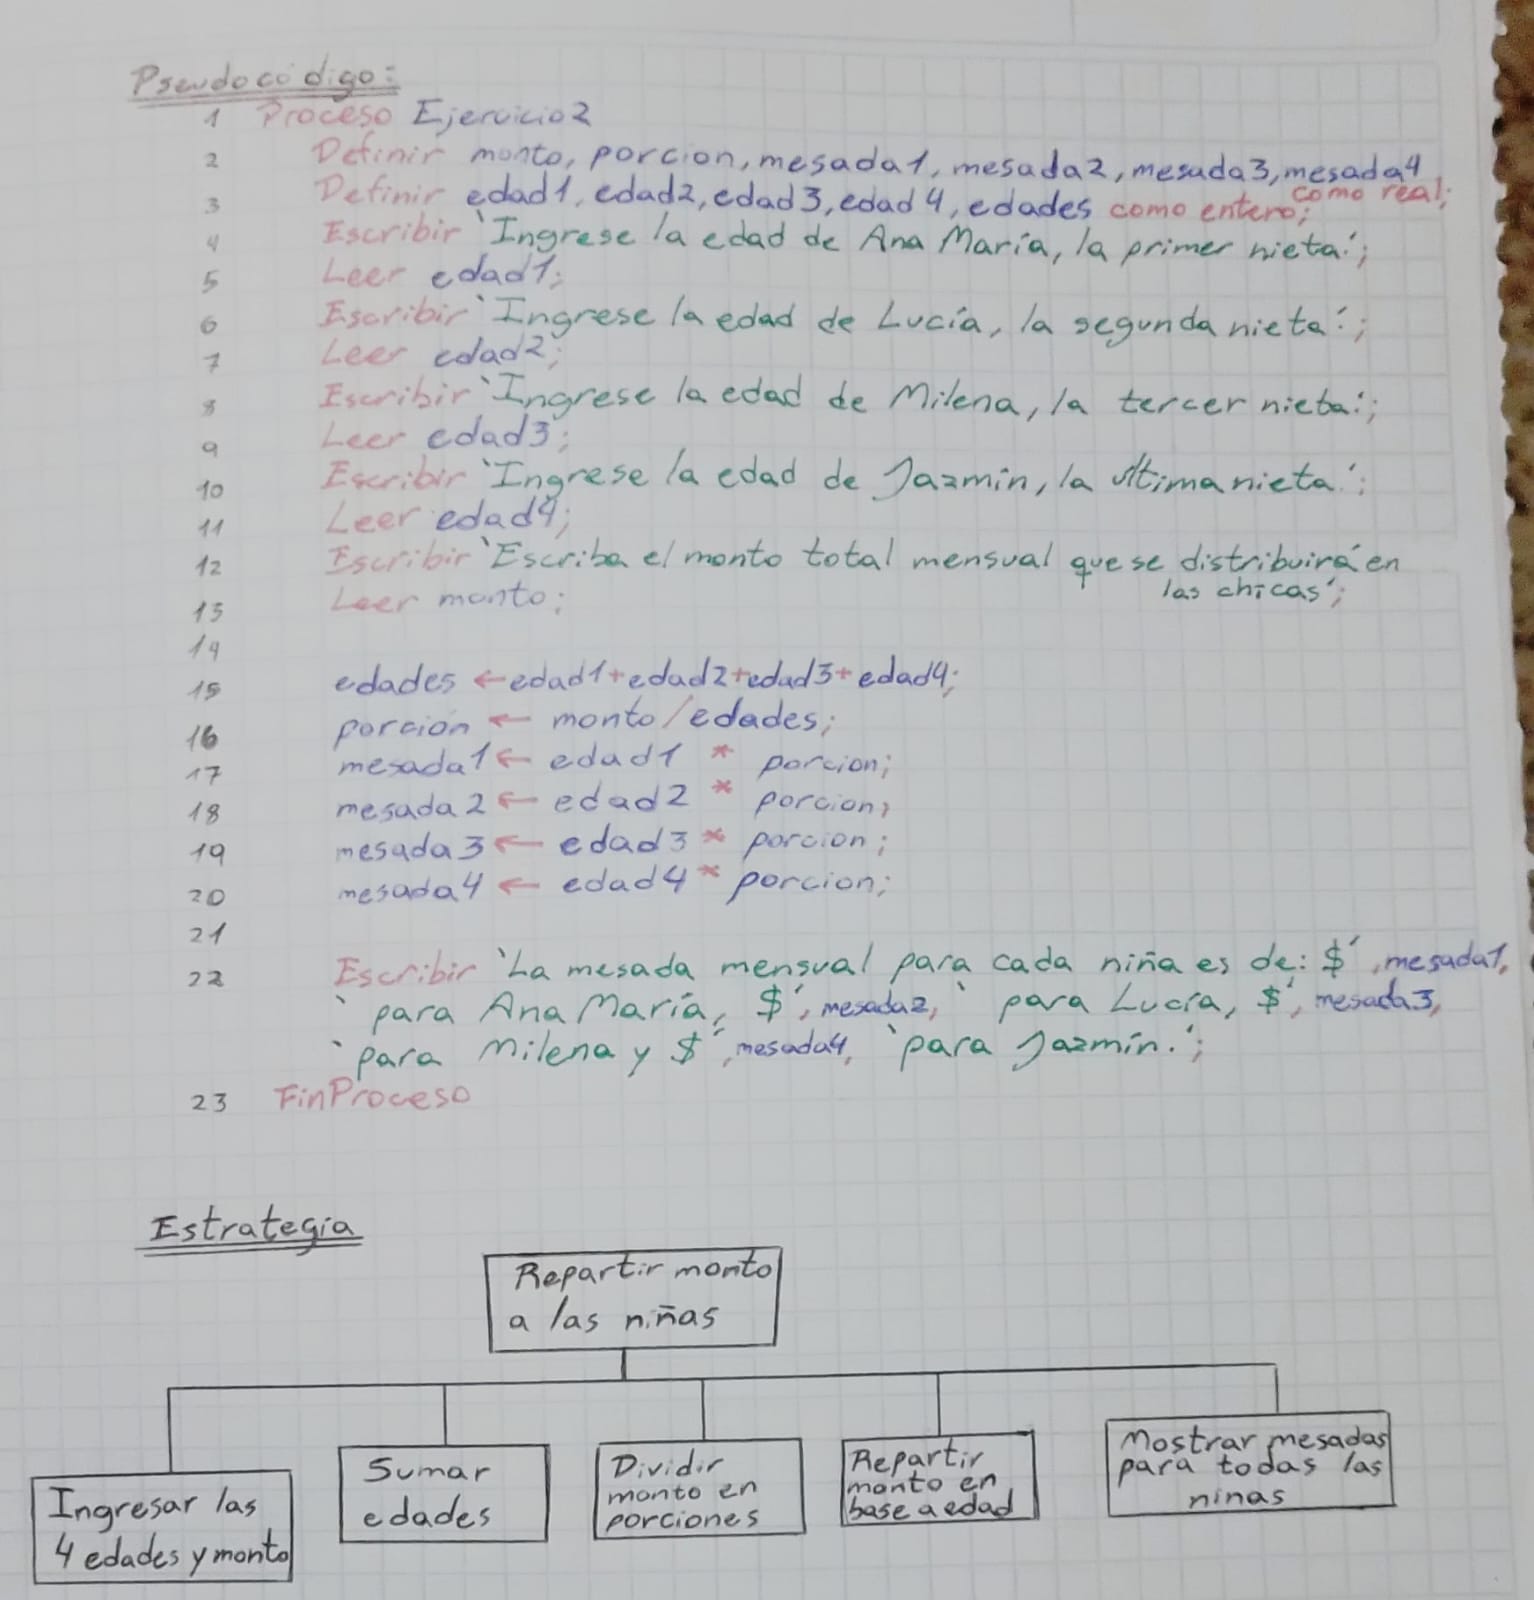 Pseudocódigo:
1 Proceso Ejercicio2
2 Definir monto, porcion, mesada1, mesada2, mesada3, mesada4
como real;
3 Definir edad1, edad2, edad3, edad4, edades como entero;
4 Escribir 'Ingrese la edad de Ana María, la primer nieta:';
5 Leer edad1;
6 Escribir 'Ingrese la edad de Lucía, la segunda nieta:';
7 Leer edad2;
8 Escribir 'Ingrese la edad de Milena, la tercer nieta:';
9 Leer edad3;
10 Escribir 'Ingrese la edad de Jazmín, la última nieta:';
11 Leer edad4;
12 Escribir 'Escriba el monto total mensual que se distribuirá en
las chicas';
13 Leer monto;
14
15 edades ← edad1+edad2+edad3+edad4;
16 porcion ← monto/edades;
17 mesada1 ← edad1 * porcion;
18 mesada2 ← edad2 * porcion;
19 mesada3 ← edad3 * porcion;
20 mesada4 ← edad4 * porcion;
21
22 Escribir 'La mesada mensual para cada niña es de: $', mesada1,
' para Ana María, $', mesada2, ' para Lucía, $', mesada3,
' para Milena y $', mesada4, ' para Jazmín.';
23 FinProceso
Estrategia
Repartir monto
a las niñas
Ingresar las
4 edades y monto
Sumar
edades
Dividir
monto en
porciones
Repartir
monto en
base a edad
Mostrar mesadas
para todas las
ninas